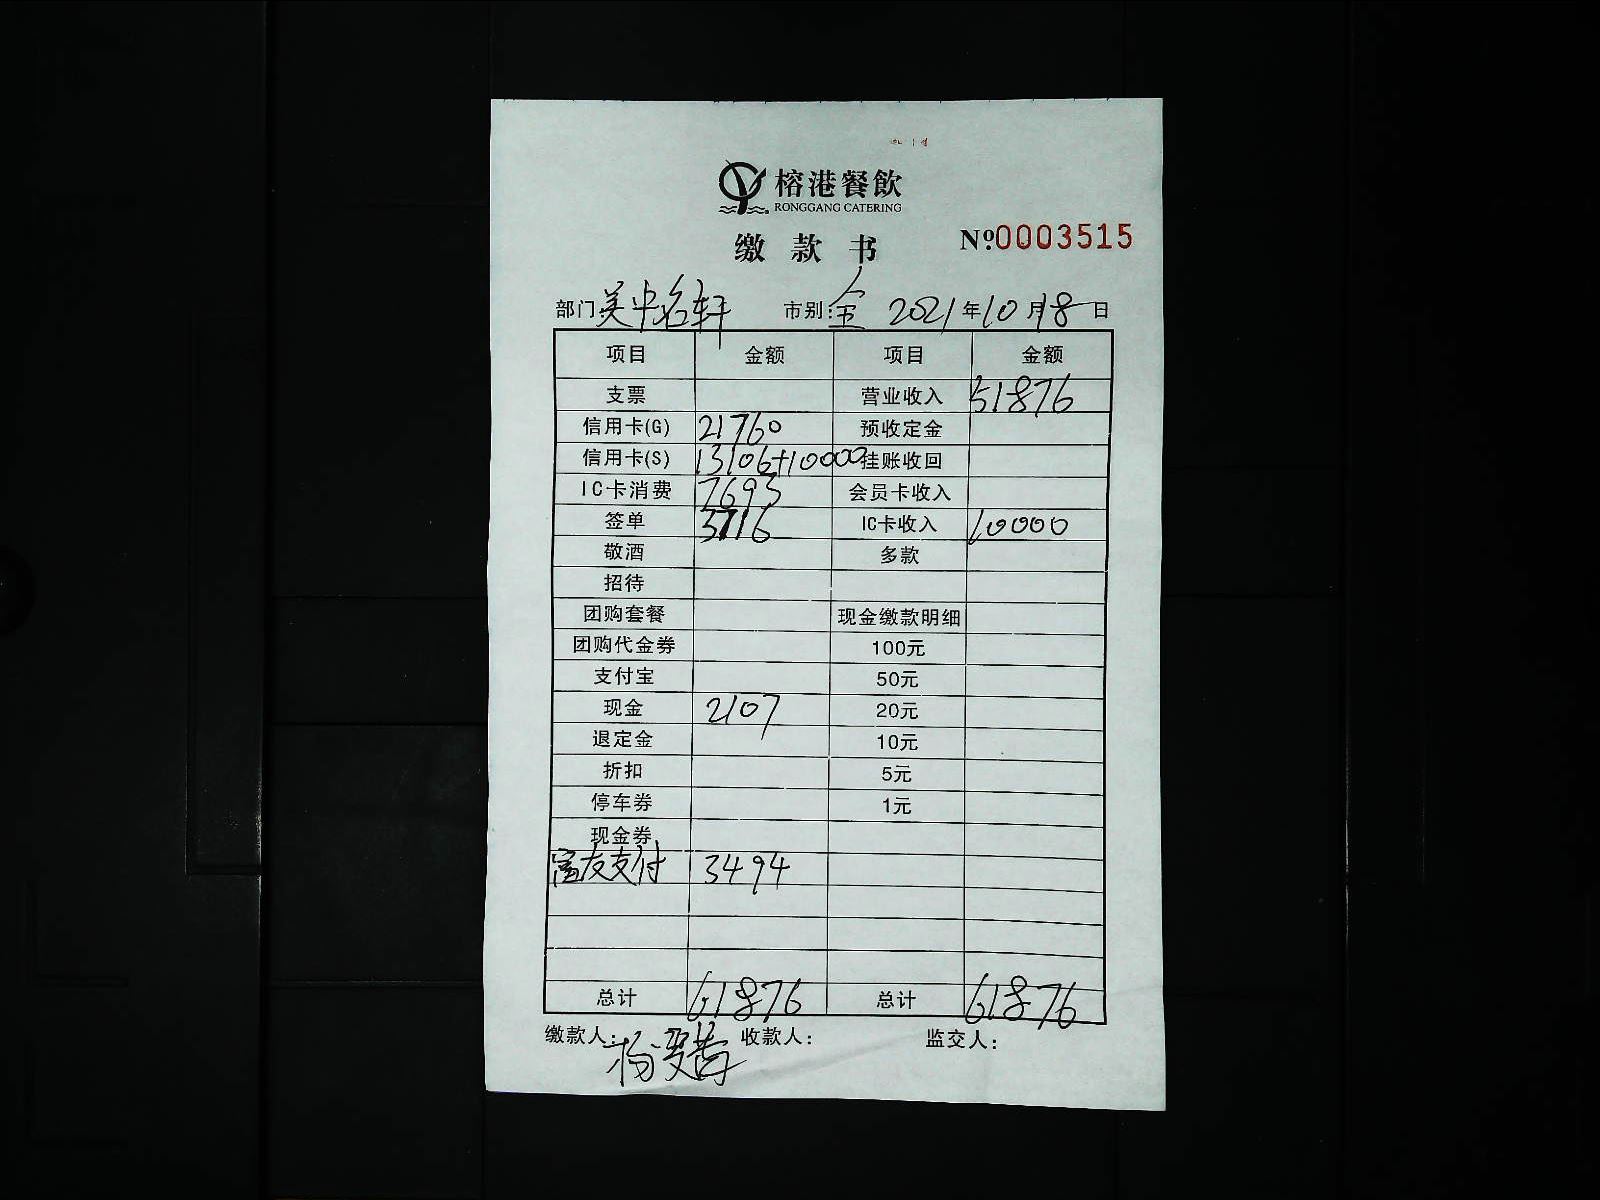 榕港餐飲
RONGGANG CATERING
缴款书 №0003515
部门 美中名轩 市别: 全 2021年10月18日
项目 金额 项目 金额
支票 营业收入 51876
信用卡(G) 21760 预收定金
信用卡(S) 13106+10000 挂账收回
IC卡消费 7693 会员卡收入
签单 3716 IC卡收入 10000
敬酒 多款
招待
团购套餐 现金缴款明细
团购代金券 100元
支付宝 50元
现金 2107 20元
退定金 10元
折扣 5元
停车券 1元
现金券
富友支付 3494
总计 61876 总计 61876
缴款人: 杨 收款人: 监交人: